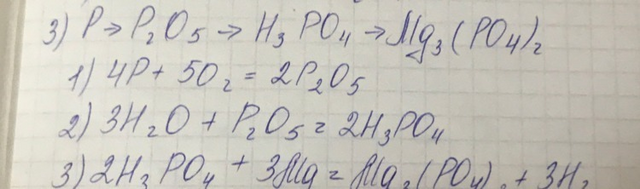 3) P → P₂O₅ → H₃PO₄ → Mg₃(PO₄)₂
1) 4P + 5O₂ = 2P₂O₅
2) 3H₂O + P₂O₅ = 2H₃PO₄
3) 2H₃PO₄ + 3Mg = Mg₃(PO₄)₂ + 3H₂